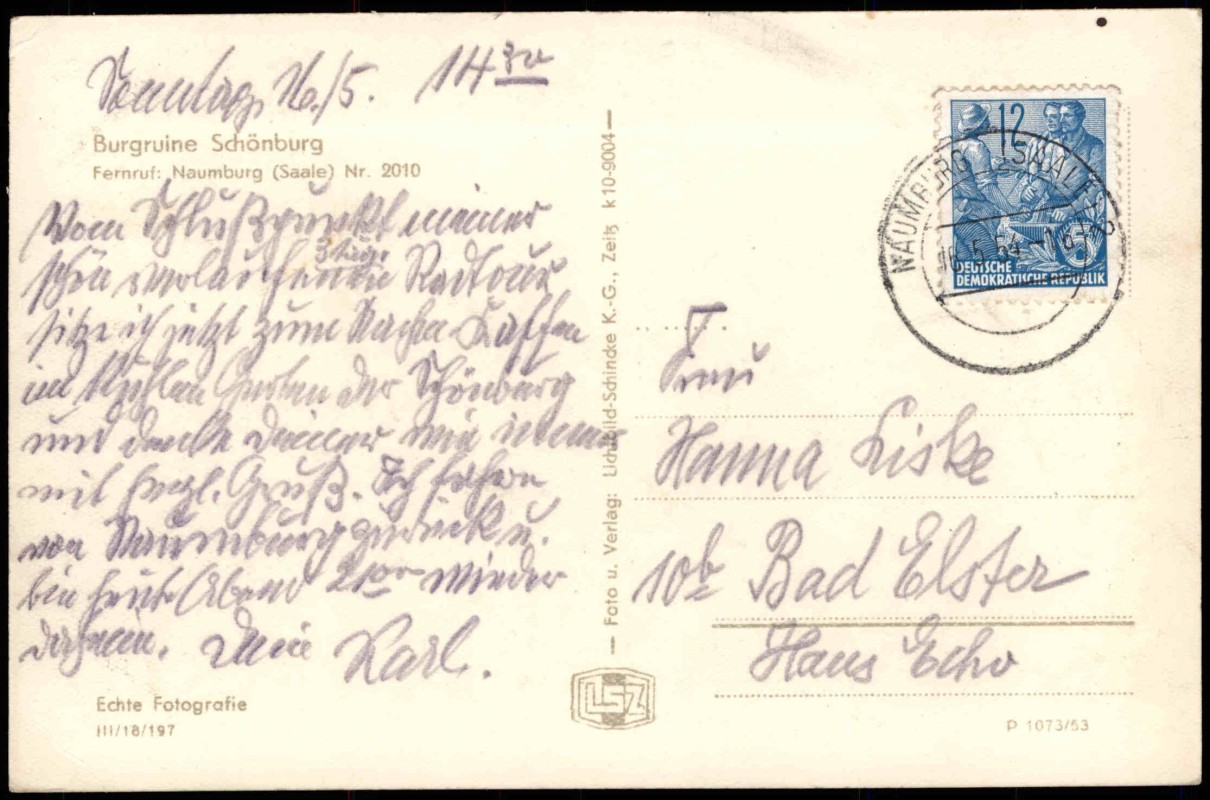 Sonntag, 16./5. 14 30
Burgruine Schönburg
Fernruf: Naumburg (Saale) Nr. 2010
Vom Schlußpunkt meiner
schön verlaufenen 3 täg. Radtour
sitze ich jetzt zum Nachm. Kaffee
im kühlen Garten der Schönburg
und denke Deiner wie immer
mit herzl. Gruß. Ich fahre
von Naumburg zurück u.
bin heute Abend 21 wieder
daheim. Dein Karl.
Echte Fotografie
III/18/197
Foto u. Verlag: Lichtbild-Schincke K.-G., Zeitz k 10-9004
LSZ
12
DEUTSCHE
DEMOKRATISCHE REPUBLIK
NAUMBURG (SAALE) 2
16.5.54
Frau
Hanna Liske
10b Bad Elster
Haus Echo
P 1073/53